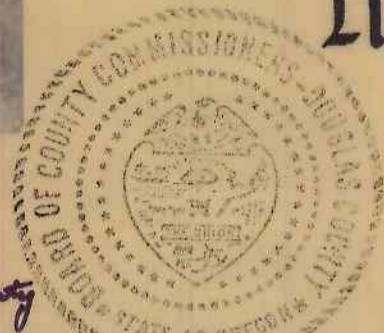 BOARD OF COUNTY COMMISSIONERS - DOUGLAS COUNTY
STATE OF OREGON
THE UNION